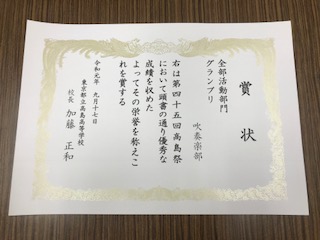 賞状
全部活動部門
グランプリ
吹奏楽部
右は第四十五回高島祭
において頭書の通り優秀な
成績を収めた
よってその栄誉を称えこ
れを賞する
令和元年 九月十七日
東京都立高島高等学校
校長 加藤 正和